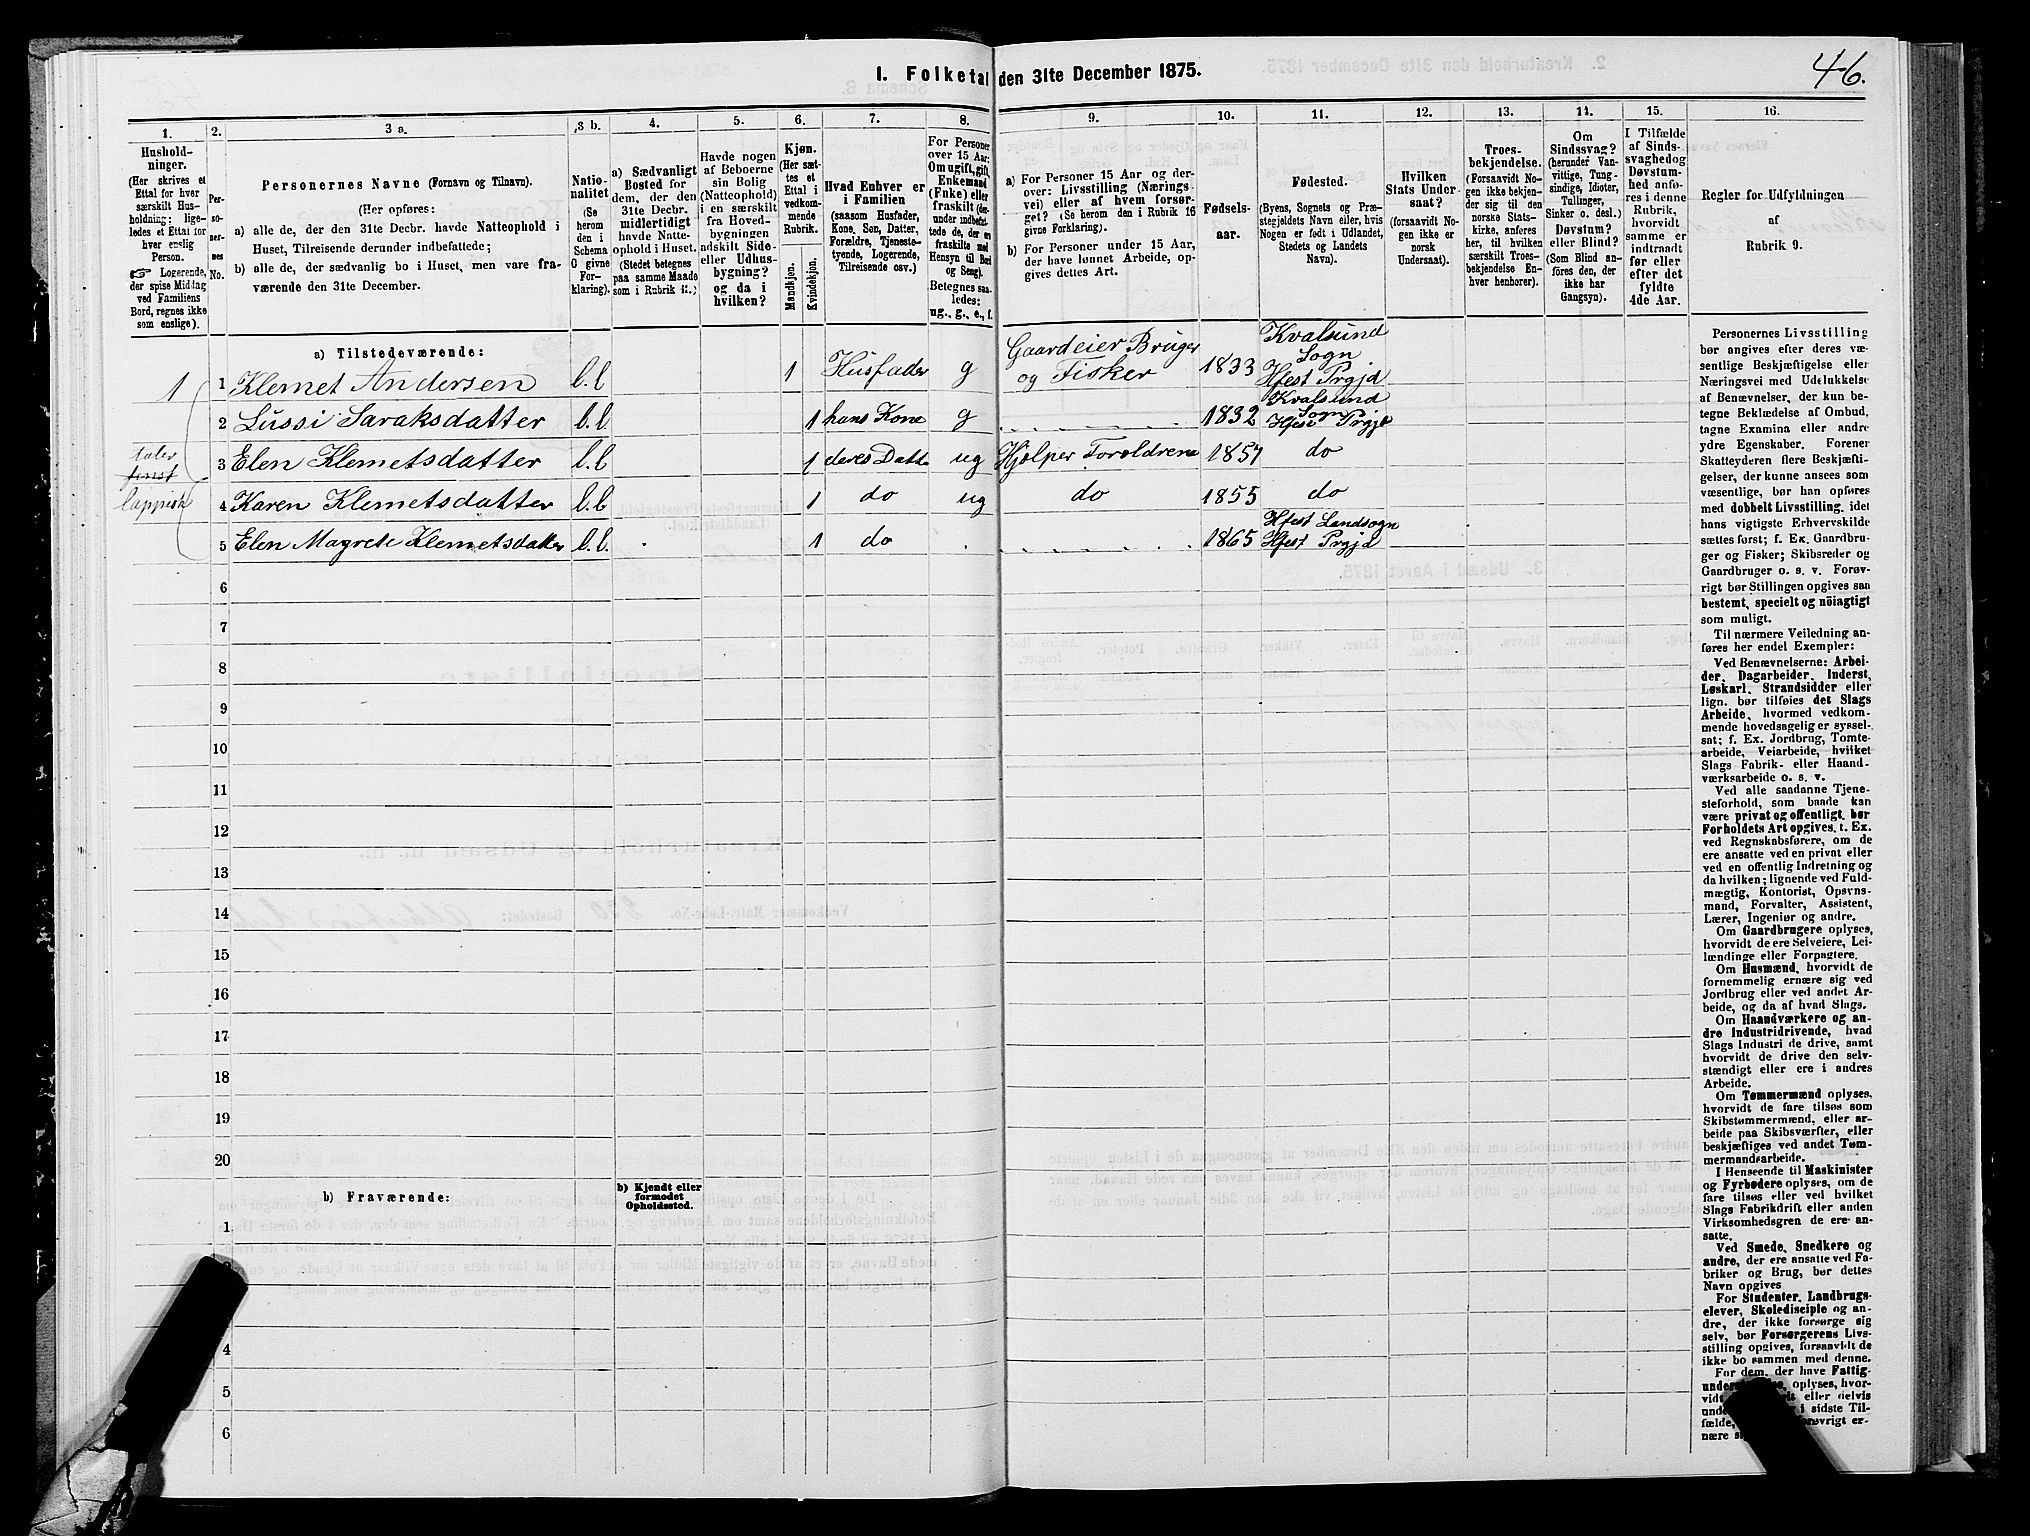 I. Folketal den 31te December 1875.
46.
1.
Hushold-
ninger.
(Her skrives et
Ettal for hver
særskilt Hus-
holdning; lige-
ledes et Ettal for
hver enslig
Person.
☞ Logerende,
der spise Middag
ved Familiens
Bord, regnes ikke
som enslige).
2.
Per-
so-
ner-
nes
No.
3 a.
Personernes Navne (Fornavn og Tilnavn).
(Her opføres:
a) alle de, der den 31te Decbr. havde Natteophold i
Huset, Tilreisende derunder indbefattede;
b) alle de, der sædvanlig bo i Huset, men vare fra-
værende den 31te December.
3 b.
Natio-
nalitet
(Se
herom
den i
Schema
C givne
For-
klaring).
4.
a) Sædvanligt
Bosted for
dem, der den
31te Decbr.
midlertidigt
havde Natte-
ophold i Huset.
(Stedet betegnes
paa samme Maade
som i Rubrik 11.)
5.
Havde nogen
af Beboerne
sin Bolig
(Natteophold)
i en særskilt
fra Hoved-
bygningen
adskilt Side-
eller Udhus-
bygning?
og da i
hvilken?
6.
Kjøn.
(Her sæt-
tes et
Ettal i
vedkom-
mende
Rubrik.
Mandkjøn.
Kvindekjøn.
7.
Hvad Enhver er
i Familien
(saasom Husfader,
Kone, Søn, Datter,
Forældre, Tjeneste-
tyende, Logerende,
Tilreisende osv.)
8.
For Personer
over 15 Aar;
Om ugift, gift,
Enkemand
(Enke) eller
fraskilt (der-
under indbefat-
tede de, der ere
fraskilte med
Hensyn til Bord
og Seng).
Betegnes saa-
ledes:
ug., g., e., f.
9.
a) For Personer 15 Aar og der-
over: Livsstilling (Nærings-
vei) eller af hvem forsør-
get? (Se herom den i Rubrik 16
givne Forklaring).
b) For Personer under 15 Aar,
der have lønnet Arbeide, op-
gives dettes Art.
10.
Fødsels-
aar.
11.
Fødested.
(Byens, Sognets og Præ-
stegjeldets Navn eller, hvis
Nogen er født i Udlandet,
Stedets og Landets
Navn).
12.
Hvilken
Stats Under-
saat?
(forsaavidt No-
gen ikke er
norsk
Undersaat).
13.
Troes-
bekjendelse.
(Forsaavidt No-
gen ikke bekjen-
der sig til den
norske Stats-
kirke, anføres
her, til hvilken
særskilt Troes-
bekjendelse En-
hver henhører).
14.
Om
Sindssvag?
(herunder Van-
vittige, Tung-
sindige, Idioter,
Tullinger,
Sinker o. desl.)
Døvstum?
eller Blind?
(Som Blind an-
føres den, der
ikke har
Gangsyn).
15.
I Tilfælde
af Sinds-
svaghed og
Døvstum-
hed anfø-
res i denne
Rubrik,
hvorvidt
samme er
indtraadt
før eller
efter det
fyldte
4de Aar.
16.
Regler for Udfyldningen
af
Rubrik 9.
a) Tilstedeværende:
1 1 Klemet Andersen l.l 1 Husfader g Gaardeier Bruger og Fisker 1833 Kvalsund Sogn Hfest Prgjd
2 Lussi Saraksdatter l.l 1 hans Kone g 1832 Kvalsund Sogn Hfest Prgjd
taler finst 3 Elen Klemetsdatter l.l 1 deres Datt ug Hjelper Foroldrene 1857 do
lappisk 4 Karen Klemetsdatter l.l 1 do ug do 1855 do
5 Elen Magrete Klemetsdatter l.l. 1 do 1865 Hfest Landsogn Hfest Prgjd
6
7
8
9
10
11
12
13
14
15
16
17
18
19
20
b) Fraværende:
b) Kjendt eller
formodet
Opholdssted.
1
4
5
6
Personernes Livsstilling
bør angives efter deres væ-
sentlige Beskjæftigelse eller
Næringsvei med Udelukkelse
af Benævnelser, der kun be-
tegne Beklædelse af Ombud,
tagne Examina eller andre
ydre Egenskaber. Forener
Skatteyderen flere Beskjæfti-
gelser, der kunne ansees som
væsentlige, bør han opføres
med dobbelt Livsstilling, idet
hans vigtigste Erhvervskilde
sættes først; f. Ex. Gaardbru-
ger og Fisker; Skibsreder og
Gaardbruger o. s. v. Forøv-
rigt bør Stillingen opgives saa
bestemt, specielt og nöiagtigt
som muligt.
Til nærmere Veiledning an-
føres her endel Exempler:
Ved Benævnelserne: Arbei-
der, Dagarbeider, Inderst,
Løskarl, Strandsidder eller
lign. bør tilføies det Slags
Arbeide, hvormed vedkom-
mende hovedsagelig er syssel-
sat; f. Ex. Jordbrug, Tomte-
arbeide, Veiarbeide, hvilket
Slags Fabrik- eller Haand-
værksarbeide o. s. v.
Ved alle saadanne Tjene-
steforhold, som baade kan
være privat og offentligt, bør
Forholdets Art opgives, t. Ex.
ved Regnskabsførere, om de
ere ansatte ved en privat eller
ved en offentlig Indretning og
da hvilken; lignende ved Fuld-
mægtig, Kontorist, Opsyns-
mand, Forvalter, Assistent,
Lærer, Ingeniør og andre.
Om Gaardbrugere oplyses,
hvorvidt de ere Selveiere, Lei-
lændinge eller Forpagtere.
Om Husmænd, hvorvidt de
fornemmelig ernære sig ved
Jordbrug eller ved andet Ar-
beide, og da af hvad Slags.
Om Haandværkere og an-
dre Industridrivende, hvad
Slags Industri de drive, samt
hvorvidt de drive den selv-
stændigt eller ere i andres
Arbeide.
Om Tømmermænd oplyses,
hvorvidt de fare tilsøs som
Skibstømmermænd, eller ar-
beide paa Skibsværfter, eller
beskjæftiges ved andet Tøm-
mermandsarbeide.
I Henseende til Maskinister
og Fyrbødere oplyses, om de
fare tilsøs eller ved hvilket
Slags Fabrikdrift eller anden
Virksomhedsgren de ere an-
satte.
Ved Smede, Snedkere og
andre, der ere ansatte ved Fa-
briker og Brug, bør dettes
Navn opgives
For Studenter, Landbrugs-
elever, Skoledisciple og an-
dre, der ikke forsørge sig
selv, bør Forsørgerens Livs-
stilling opgives, forsaavidt de
ikke bo sammen med denne.
For dem, der have Fattig-
oplyses, hvor-
eller delvis
i sidste Til-
fælde, forøvrigt er-
nære